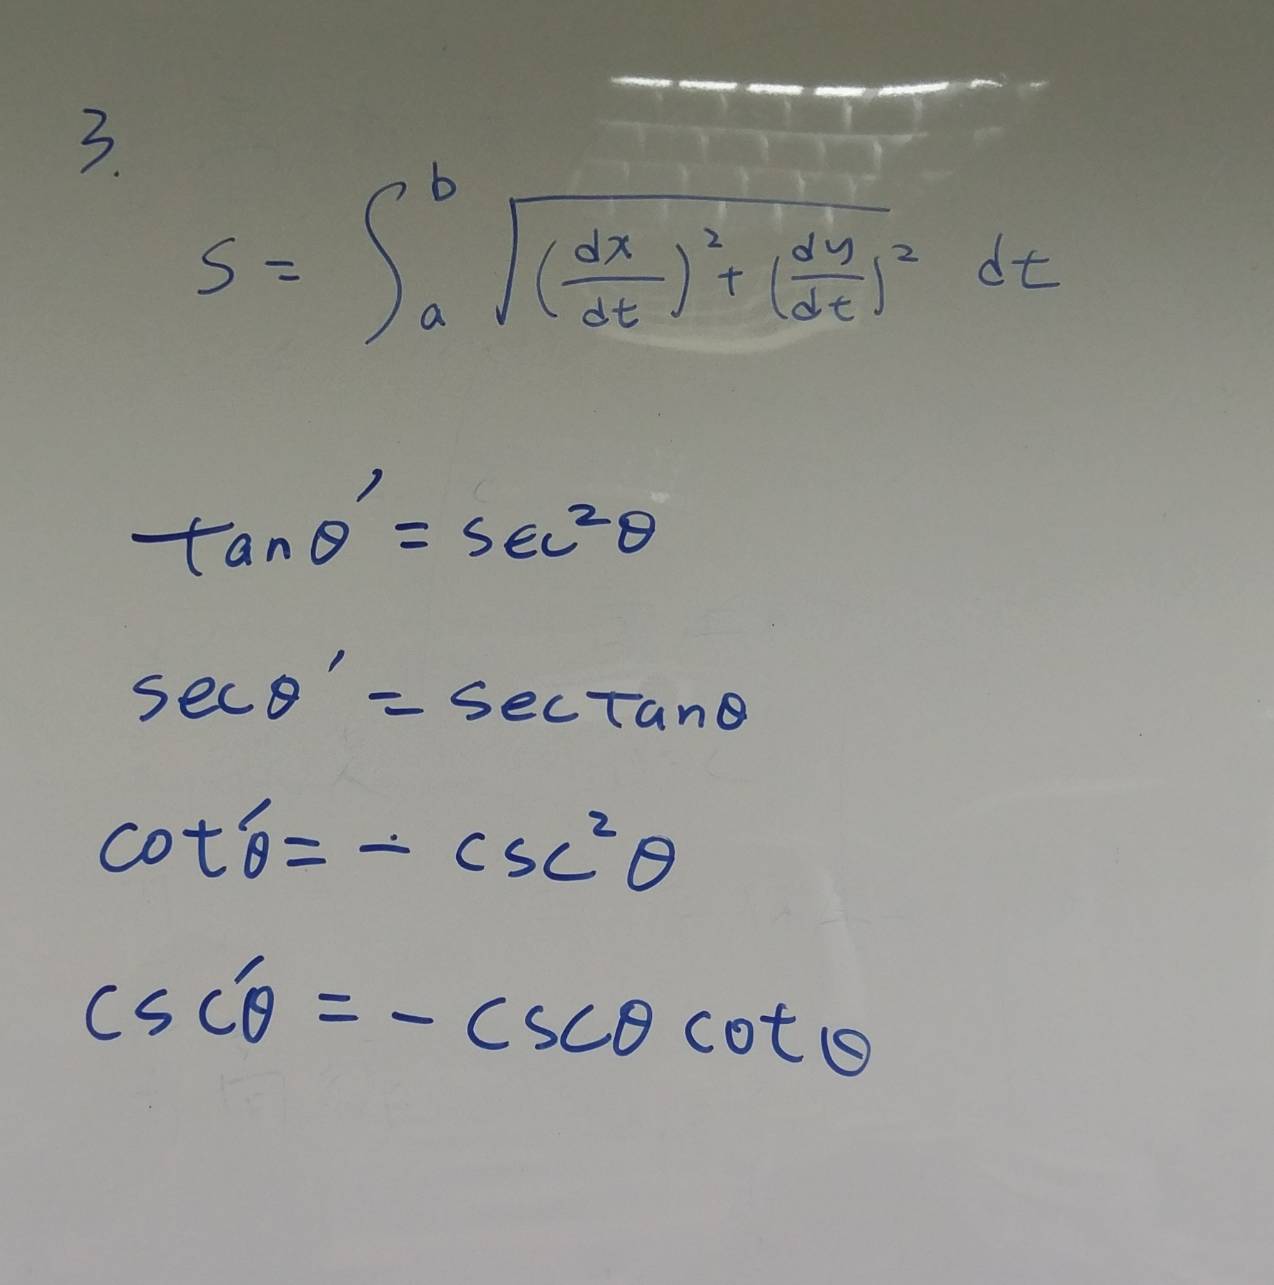 3.
S = ∫_a^b √((dx/dt)² + (dy/dt)²) dt
tanθ' = sec²θ
secθ' = secTanθ
cot'θ = - csc²θ
csc'θ = - cscθ cotθ